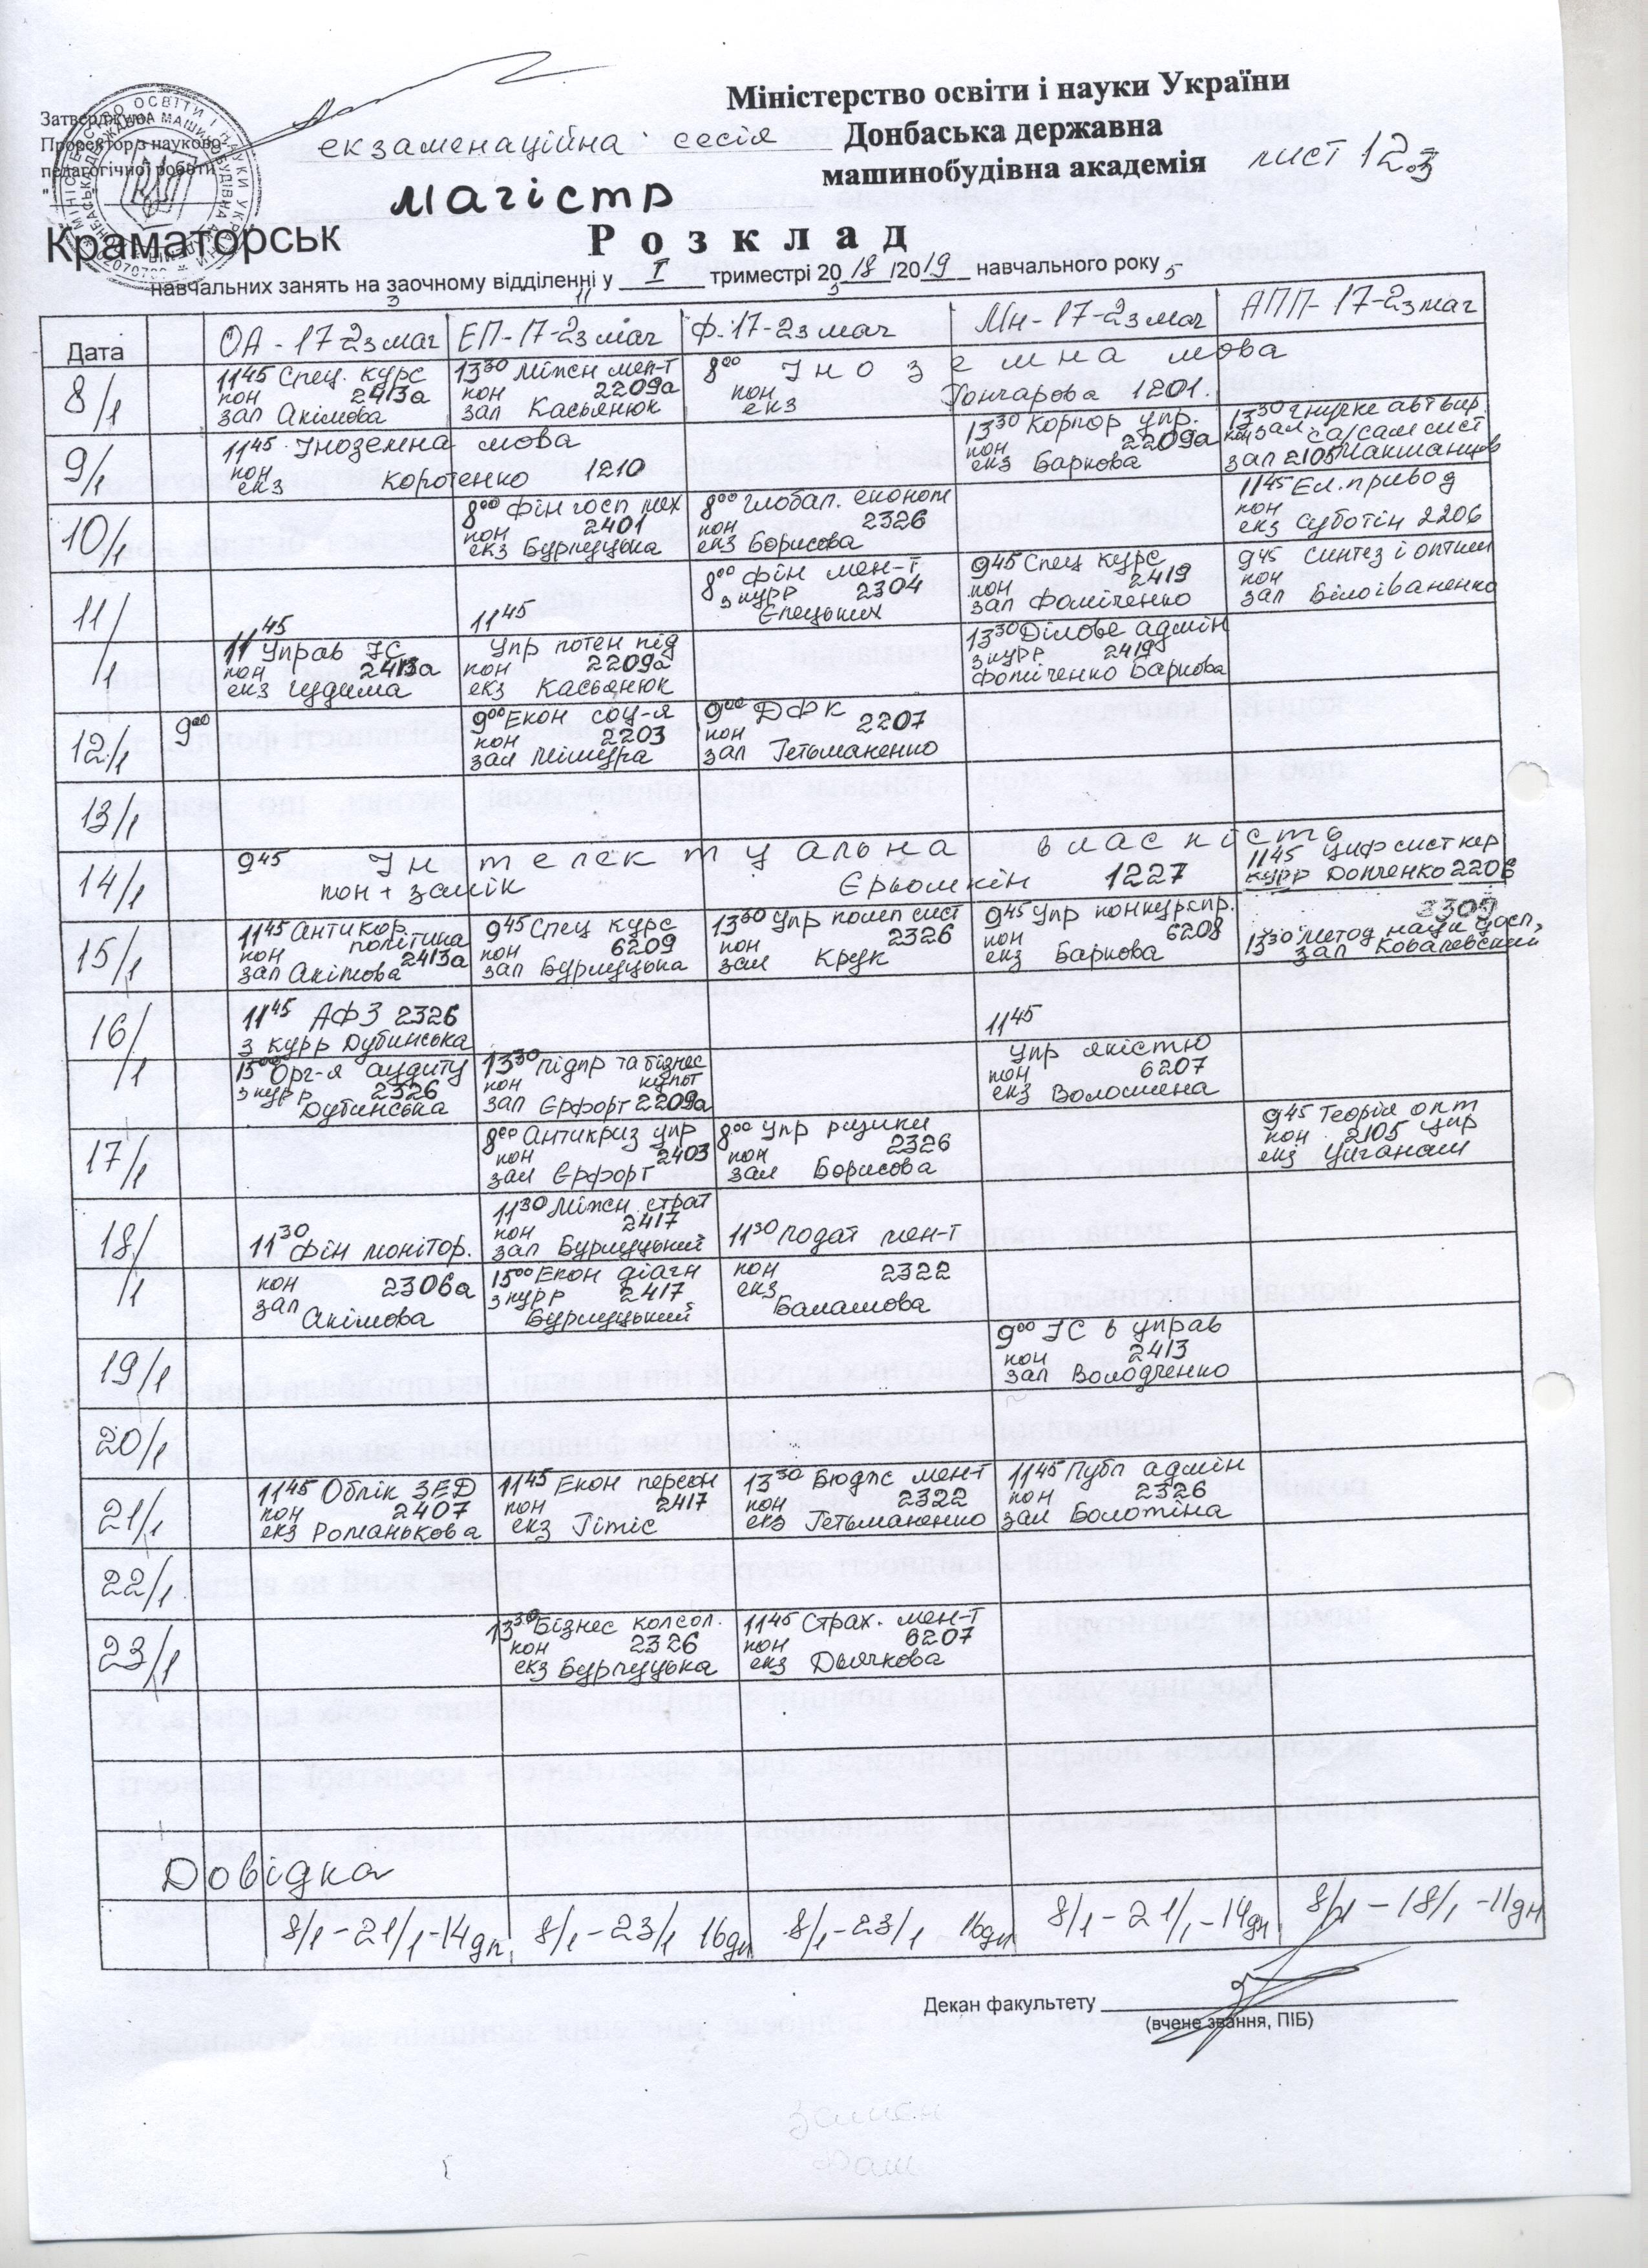 Затверджую
Проректор з науково-
педагогічної роботи
Міністерство освіти і науки України
Донбаська державна
машинобудівна академія
екзаменаційна сесія
лист 12з
магістр
Краматорськ
Розклад
навчальних занять на заочному відділенні у I триместрі 2018/2019 навчального року
Дата
ОА-17-2з маг
ЕП-17-2з маг
Ф-17-2з маг
Мн-17-2з маг
АПП-17-2з маг
8/1
11 45 Спец. курс
кон 2413а
зал Акімова
13 30 Міжн мен-т
кон 2209а
зал Касьянюк
8 00 Іноземна мова
кон Гончарова 1201.
екз
9/1
11 45 Іноземна мова
кон
екз Коротенко 1210
13 30 Корпор упр.
кон 2209а
екз Баркова
13 30 Гнучке авт вир.
зал 2105
10/1
8 00 Фін госп мех
кон 2401
екз Бурлуцька
8 00 Глобал. економ
кон 2326
екз Борисова
11 45 Ел. привод
кон
екз Суботін 2206
11/1
11 45
Управ ІС
кон 2413а
екз Гудима
11 45
Упр потен під
кон 2209а
екз Касьянюк
8 00 Фін мен-т
з курр 2304
Єлецьких
9 45 Спец курс
кон 2419
зал Фоміченко
13 30 Ділове адмін
з курр 2419
Фоміченко Баркова
9 45 Синтез і оптим
кон
зал Білоіваненко
12/1
9 00
9 00 Екон соц-я
кон 2203
зал Мішура
9 00 ДФК
кон 2207
зал Гетьманенко
13/1
14/1
9 45 Інтелектуальна власність
кон + залік Єрьомкін 1227
11 45 Циф сист кер
курр Донченко 2206
15/1
11 45 Антикор.
кон політика
2413а
зал Акімова
9 45 Спец курс
кон 6209
зал Бурлуцька
13 30 Упр комп сист
кон 2326
зал Крук
9 45 Упр конкурспр.
кон 6208
екз Баркова
2309
13 30 Метод наук досл,
зал Ковалевский
16/1
11 45 АФЗ 2326
з курр Дубинська
15 00 Орг-я аудиту
з курр 2326
Дубинська
13 30 Підпр та бізнес
кон культ
зал Єрфорт 2209а
11 45
Упр якістю
кон 6207
екз Волошена
17/1
8 00 Антикриз упр
кон 2403
зал Єрфорт
8 00 Упр ризики
кон 2326
зал Борисова
9 45 Теорія опт
кон 2105 упр
екз Циганаш
18/1
11 30 Фін монітор.
кон 2306а
зал
Акімова
11 30 Міжн страт
кон 2417
зал Бурлуцький
15 00 Екон діагн
з курр 2417
Бурлуцький
11 30 Подат мен-т
кон 2322
екз
Балашова
19/1
9 00 ІС в управ
кон 2413
зал Володченко
20/1
21/1
11 45 Облік ЗЕД
кон 2407
екз Романькова
11 45 Екон персон
кон 2417
екз Гітіс
13 30 Бюдж мен-т
кон 2322
екз Гетьманенко
11 45 Публ адмін
кон 2326
зал Болотіна
22/1
23/1
13 30 Бізнес консол.
кон 2326
екз Бурлуцька
11 45 Страх. мен-т
кон 6207
екз Дьячкова
Довідка
8/1-21/1-14дн.
8/1-23/1 16дн
8/1-23/1 16дн
8/1-21/1-14дн
8/1-18/1-11дн
Декан факультету
(вчене звання, ПІБ)